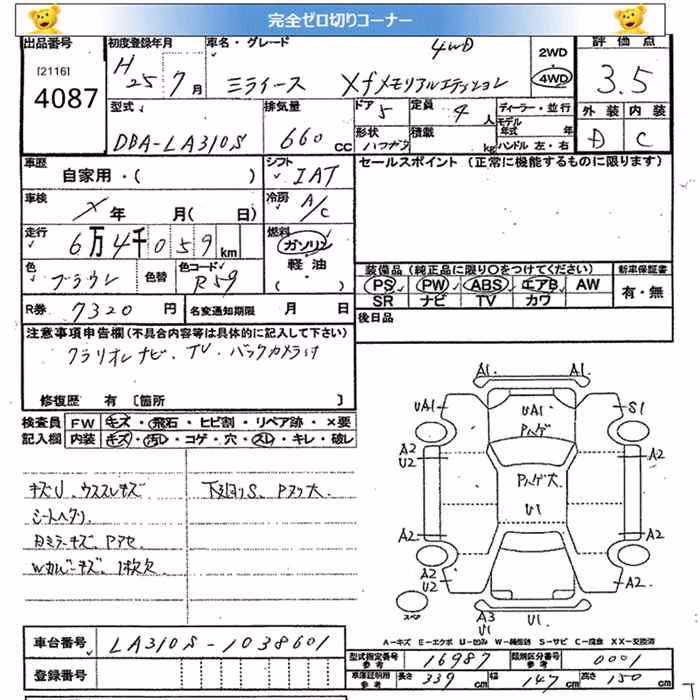 完全ゼロ切りコーナー
出品番号 [2116] 4087
初度登録年月 H25年7月
車名・グレード ミライース Xfメモリアルエディション 4WD
2WD 4WD
評価点 3.5
外装 D 内装 C
型式 DBA-LA310S
排気量 660 CC
ドア 5 定員 4人
形状 ハツチバツク 積載 kg
ディーラー・並行
モデル年式 年
ハンドル 左・右
車歴 自家用・( )
シフト IAT
セールスポイント (正常に機能するものに限ります)
車検 X年 月( 日)
冷房 A/C
走行 6万4千059km
燃料 ガソリン・軽油・( )
色 ブラウン 色替 色コード R59
装備品 (純正品に限り〇をつけてください) 新車保証書
PS PW ABS エアB AW 有・無
SR ナビ TV カワ
R券 7320円 名変通知期限 月 日
後日品
注意事項申告欄 (不具合内容等は具体的に記入して下さい)
クラリオンナビ、TV、バックカメラ付
修復歴 有 [箇所 ]
検査員 FW キズ・飛石・ヒビ割・リペア跡・×要
記入欄 内装 キズ・汚レ・コゲ・穴・スレ・キレ・破レ
キズU、ウススレキズ 下廻りS、Pヌケ大
シートヘタリ
Wカバーキズ、1枚欠
A1 A1
UA1 UA1 S1
Pハゲ
A2 U2 Pハゲ大 A2
U1
A2 A2
A2 U2 A2 U2
スペア A3 U1 U1
A-キズ E-エクボ U-凹み W-補修跡 S-サビ C-腐食 XX-交換済
車台番号 LA310S-1038601
型式指定番号 参考 16987 類別区分番号 参考 0001
登録番号
車庫証明用 参考 長さ 339cm 幅 147cm 高さ 150cm